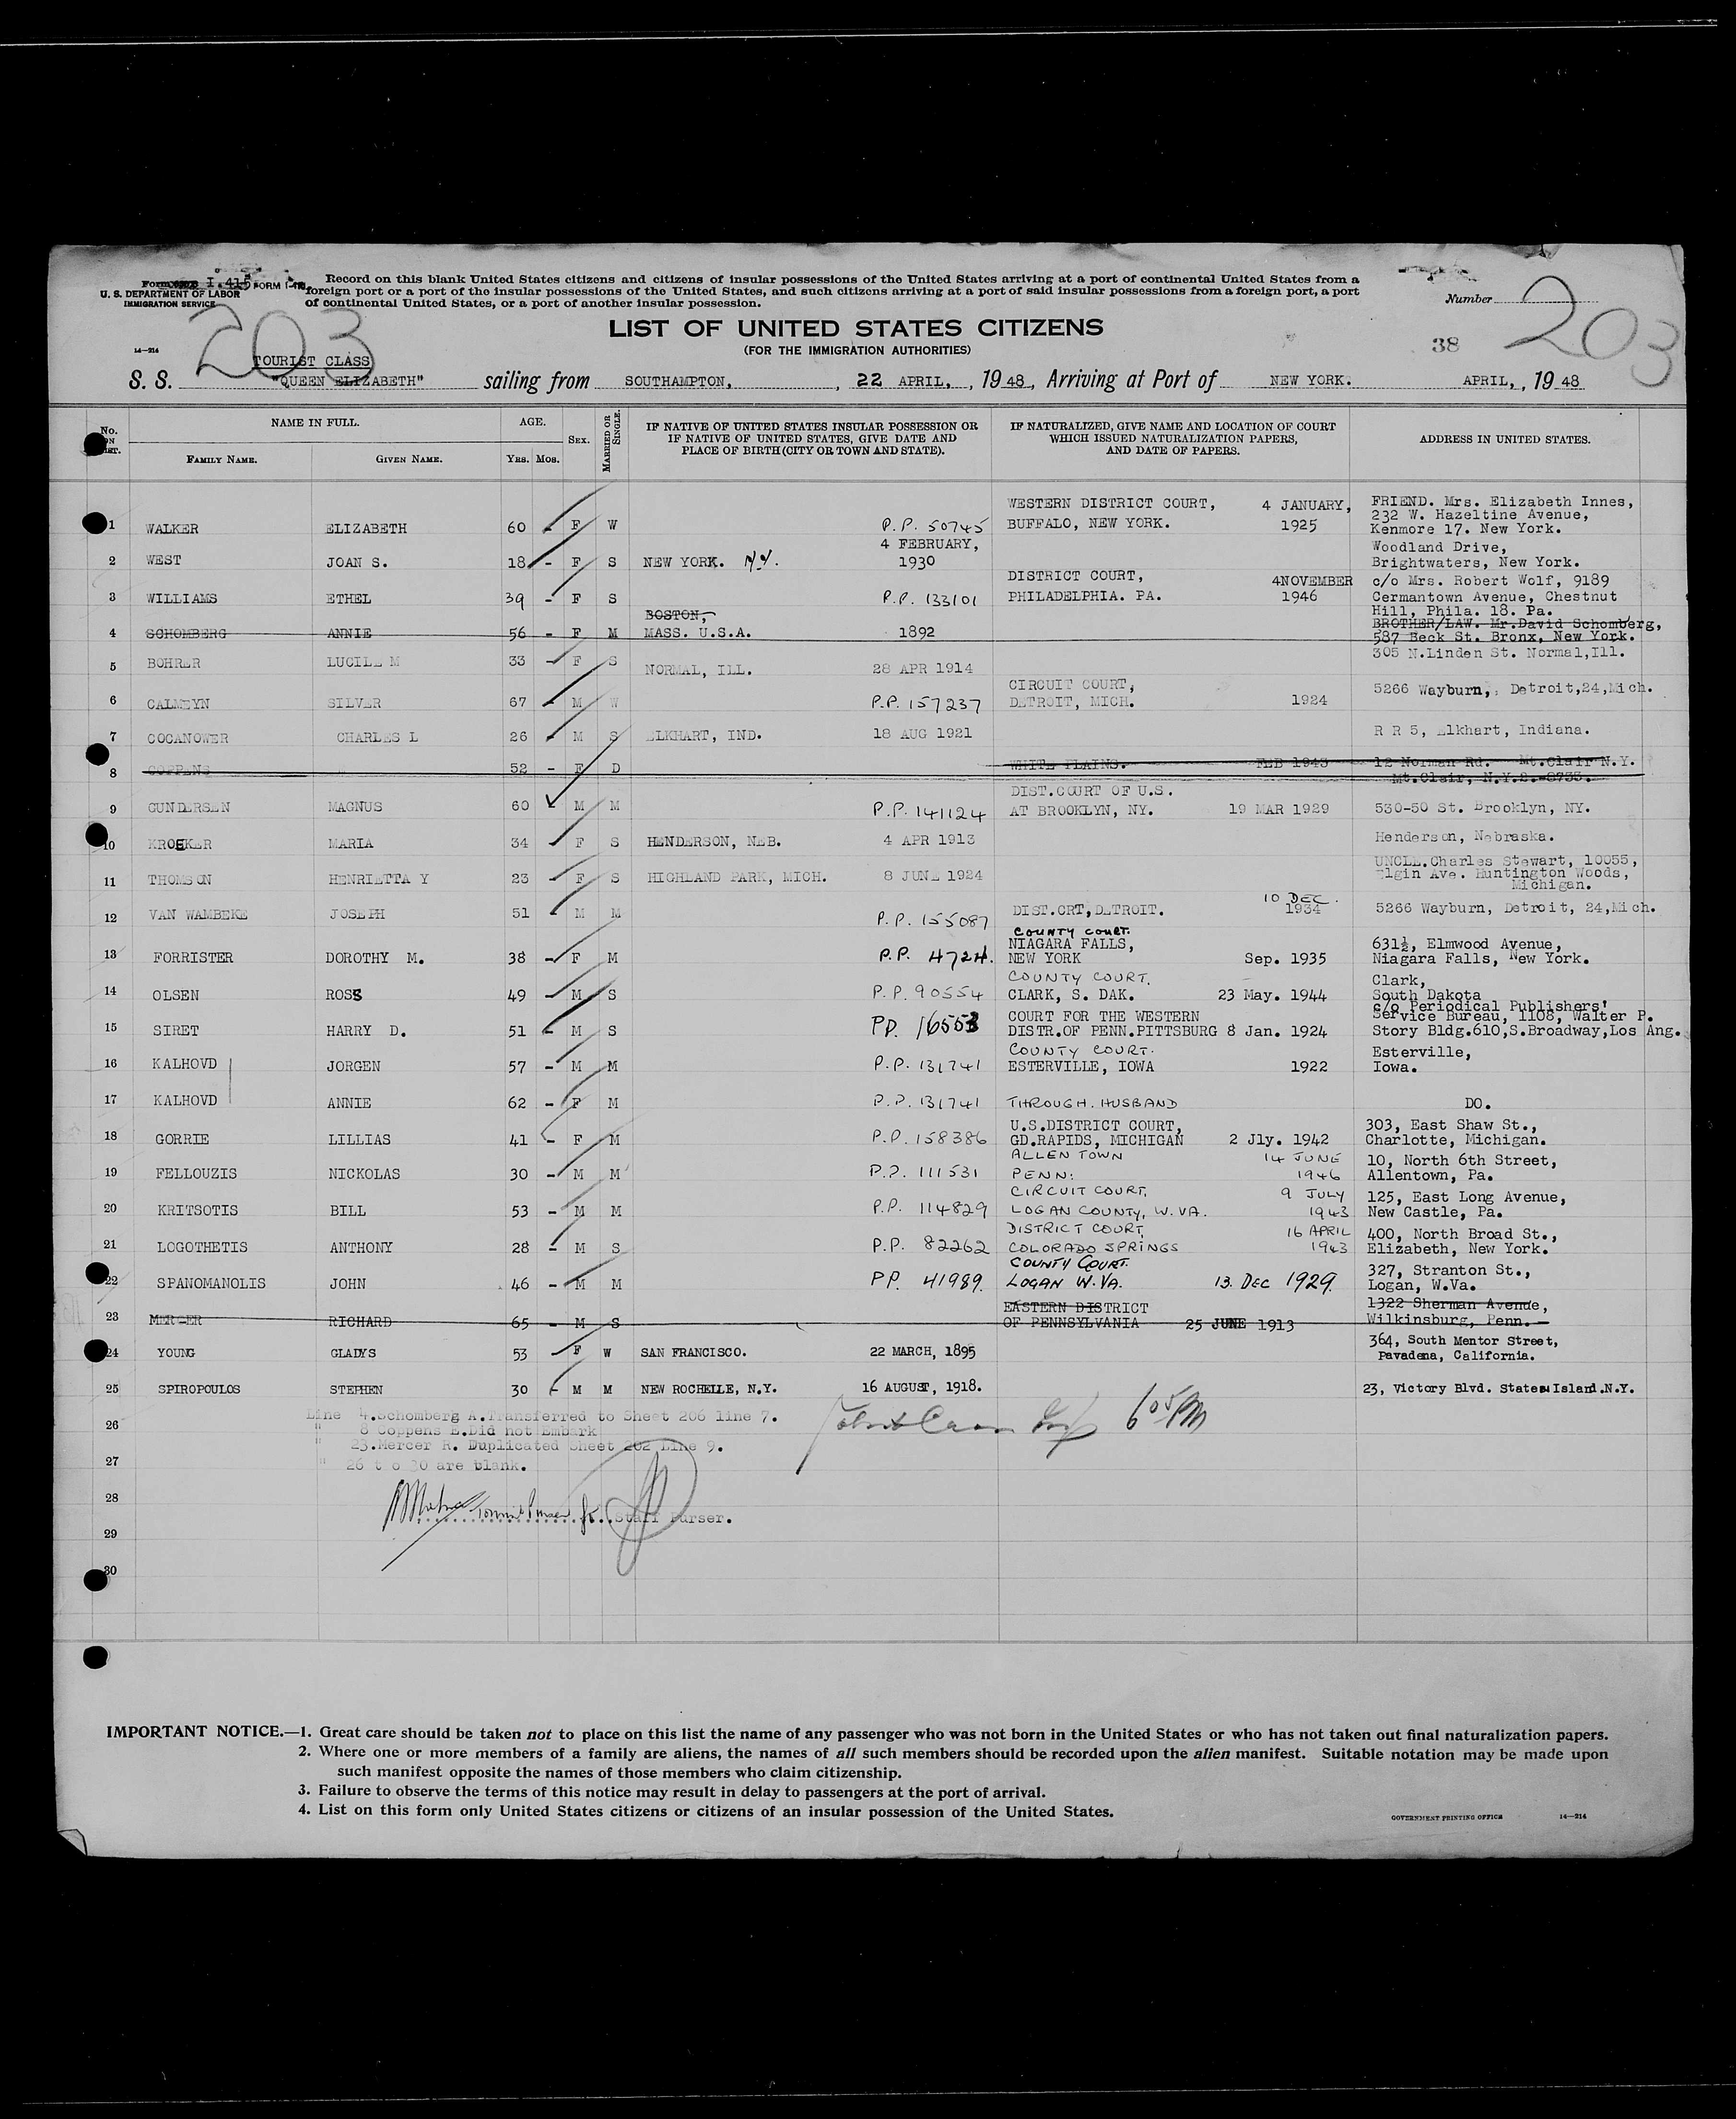 Form I-415 FORM I-
U. S. DEPARTMENT OF LABOR
IMMIGRATION SERVICE
Record on this blank United States citizens and citizens of insular possessions of the United States arriving at a port of continental United States from a
foreign port or a port of the insular possessions of the United States, and such citizens arriving at a port of said insular possessions from a foreign port, a port
of continental United States, or a port of another insular possession.
Number 203
203
LIST OF UNITED STATES CITIZENS
(FOR THE IMMIGRATION AUTHORITIES)
38
14—214
TOURIST CLASS
S. S. "QUEEN ELIZABETH" sailing from SOUTHAMPTON, , 22 APRIL, , 19 48, Arriving at Port of NEW YORK. APRIL, , 19 48
No. ON LIST. NAME IN FULL. AGE. SEX. MARRIED OR SINGLE. IF NATIVE OF UNITED STATES INSULAR POSSESSION OR IF NATIVE OF UNITED STATES, GIVE DATE AND PLACE OF BIRTH (CITY OR TOWN AND STATE). IF NATURALIZED, GIVE NAME AND LOCATION OF COURT WHICH ISSUED NATURALIZATION PAPERS, AND DATE OF PAPERS. ADDRESS IN UNITED STATES.
FAMILY NAME. GIVEN NAME. YRS. MOS.
1 WALKER ELIZABETH 60 - F W P.P. 50745 WESTERN DISTRICT COURT, BUFFALO, NEW YORK. 4 JANUARY, 1925 FRIEND. Mrs. Elizabeth Innes, 232 W. Hazeltine Avenue, Kenmore 17. New York.
2 WEST JOAN S. 18 - F S NEW YORK. N.Y. 4 FEBRUARY, 1930 Woodland Drive, Brightwaters, New York.
3 WILLIAMS ETHEL 39 - F S P.P. 133101 DISTRICT COURT, PHILADELPHIA. PA. 4NOVEMBER 1946 c/o Mrs. Robert Wolf, 9189 Cermantown Avenue, Chestnut Hill, Phila. 18. Pa.
4 SCHOMBERG ANNIE 56 - F M BOSTON, MASS. U.S.A. 1892 BROTHER/LAW. Mr.David Schomberg, 587 Beck St. Bronx, New York.
5 BOHRER LUCILE M 33 - F S NORMAL, ILL. 28 APR 1914 305 N.Linden St. Normal,Ill.
6 CALMEYN SILVER 67 - M W P.P. 157237 CIRCUIT COURT, DETROIT, MICH. 1924 5266 Wayburn, Detroit,24,Mich.
7 COCANOWER CHARLES L 26 - M S ELKHART, IND. 18 AUG 1921 R R 5, Elkhart, Indiana.
8 COPPENS 52 - F D WHITE PLAINS. FEB 1943 12 Norman Rd. Mt.Clair N.Y. Mt.Clair, N.Y.2.-8733.
9 GUNDERSEN MAGNUS 60 M M P.P. 141124 DIST.COURT OF U.S. AT BROOKLYN, NY. 19 MAR 1929 530-50 St. Brooklyn, NY.
10 KROEKER MARIA 34 - F S HENDERSON, NEB. 4 APR 1913 Henderson, Nebraska.
11 THOMSON HENRIETTA Y 23 - F S HIGHLAND PARK, MICH. 8 JUNE 1924 UNCLE.Charles Stewart, 10055, Elgin Ave. Huntington Woods, Michigan.
12 VAN WAMBEKE JOSEPH 51 - M M P.P. 155087 DIST.CRT,DETROIT. 10 DEC. 1934 5266 Wayburn, Detroit, 24,Mich.
13 FORRISTER DOROTHY M. 38 - F M P.P. 4724. COUNTY COURT. NIAGARA FALLS, NEW YORK Sep. 1935 631½, Elmwood Avenue, Niagara Falls, New York.
14 OLSEN ROSS 49 - M S P.P. 90554 COUNTY COURT. CLARK, S. DAK. 23 May. 1944 Clark, South Dakota
15 SIRET HARRY D. 51 - M S PP. 16553 COURT FOR THE WESTERN DISTR.OF PENN.PITTSBURG 8 Jan. 1924 c/o Periodical Publishers' Service Bureau, 1108, Walter P. Story Bldg.610,S.Broadway,Los Ang.
16 KALHOVD JORGEN 57 - M M P.P. 131741 COUNTY COURT. ESTERVILLE, IOWA 1922 Esterville, Iowa.
17 KALHOVD ANNIE 62 - F M P.P. 131741 THROUGH. HUSBAND DO.
18 GORRIE LILLIAS 41 - F M P.P. 158386 U.S.DISTRICT COURT, GD.RAPIDS, MICHIGAN 2 Jly. 1942 303, East Shaw St., Charlotte, Michigan.
19 FELLOUZIS NICKOLAS 30 - M M P.P. 111531 ALLEN TOWN PENN: 14 JUNE 1946 10, North 6th Street, Allentown, Pa.
20 KRITSOTIS BILL 53 - M M P.P. 114829 CIRCUIT COURT, LOGAN COUNTY, W.VA. 9 JULY 1943 125, East Long Avenue, New Castle, Pa.
21 LOGOTHETIS ANTHONY 28 - M S P.P. 82262 DISTRICT COURT, COLORADO SPRINGS 16 APRIL 1943 400, North Broad St., Elizabeth, New York.
22 SPANOMANOLIS JOHN 46 - M M PP. 41989. COUNTY COURT. LOGAN W.VA. 13. DEC 1929. 327, Stranton St., Logan, W.Va.
23 MERCER RICHARD 65 - M S EASTERN DISTRICT OF PENNSYLVANIA 25 JUNE 1913 1322 Sherman Avenue, Wilkinsburg, Penn.
24 YOUNG GLADYS 53 - F W SAN FRANCISCO. 22 MARCH, 1895 364, South Mentor Street, Pavadena, California.
25 SPIROPOULOS STEPHEN 30 - M M NEW ROCHELLE, N.Y. 16 AUGUST, 1918. 23, Victory Blvd. Staten Island.N.Y.
26 Line 4.Schomberg A.Transferred to Sheet 206 line 7.
" 8 Coppens E.Did not Embark
" 23.Mercer R. Duplicated Sheet 202 Line 9.
27 " 26 t o 30 are blank.
6 05 PM
28 Staff Purser.
29
30
IMPORTANT NOTICE.—1. Great care should be taken not to place on this list the name of any passenger who was not born in the United States or who has not taken out final naturalization papers.
2. Where one or more members of a family are aliens, the names of all such members should be recorded upon the alien manifest. Suitable notation may be made upon
such manifest opposite the names of those members who claim citizenship.
3. Failure to observe the terms of this notice may result in delay to passengers at the port of arrival.
4. List on this form only United States citizens or citizens of an insular possession of the United States.
GOVERNMENT PRINTING OFFICE 14—214